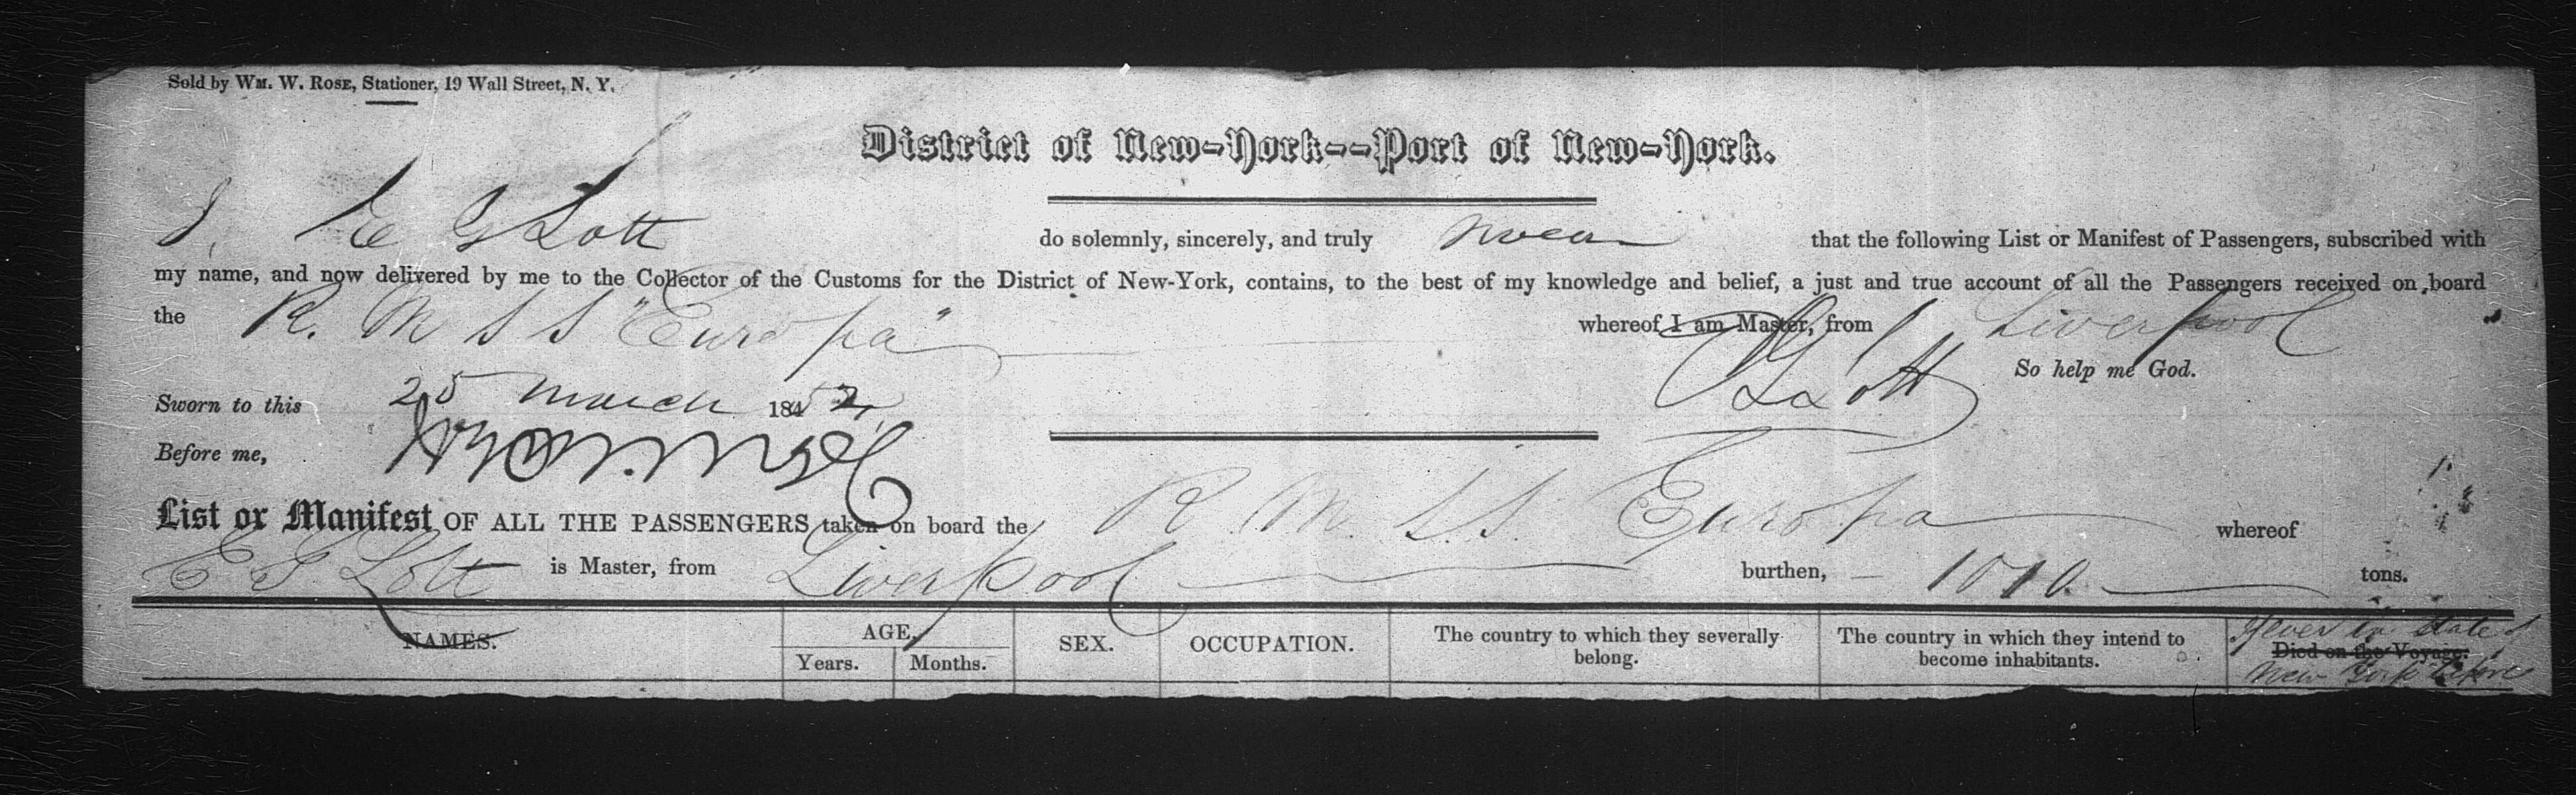 Sold by WM. W. ROSE, Stationer, 19 Wall Street, N. Y.
District of New-York--Port of New-York.
I, E G Lott do solemnly, sincerely, and truly swear that the following List or Manifest of Passengers, subscribed with
my name, and now delivered by me to the Collector of the Customs for the District of New-York, contains, to the best of my knowledge and belief, a just and true account of all the Passengers received on board
the R. M S S "Europa" whereof I am Master, from Liverpool
So help me God.
E G Lott
Sworn to this 25 March 1852
Before me,
List or Manifest OF ALL THE PASSENGERS taken on board the R. M. S. S. Europa whereof
E G Lott is Master, from Liverpool burthen, 1010 tons.
NAMES. AGE. SEX. OCCUPATION. The country to which they severally belong. The country in which they intend to become inhabitants. Died on the Voyage.
Years. Months. If ever in State of New York before